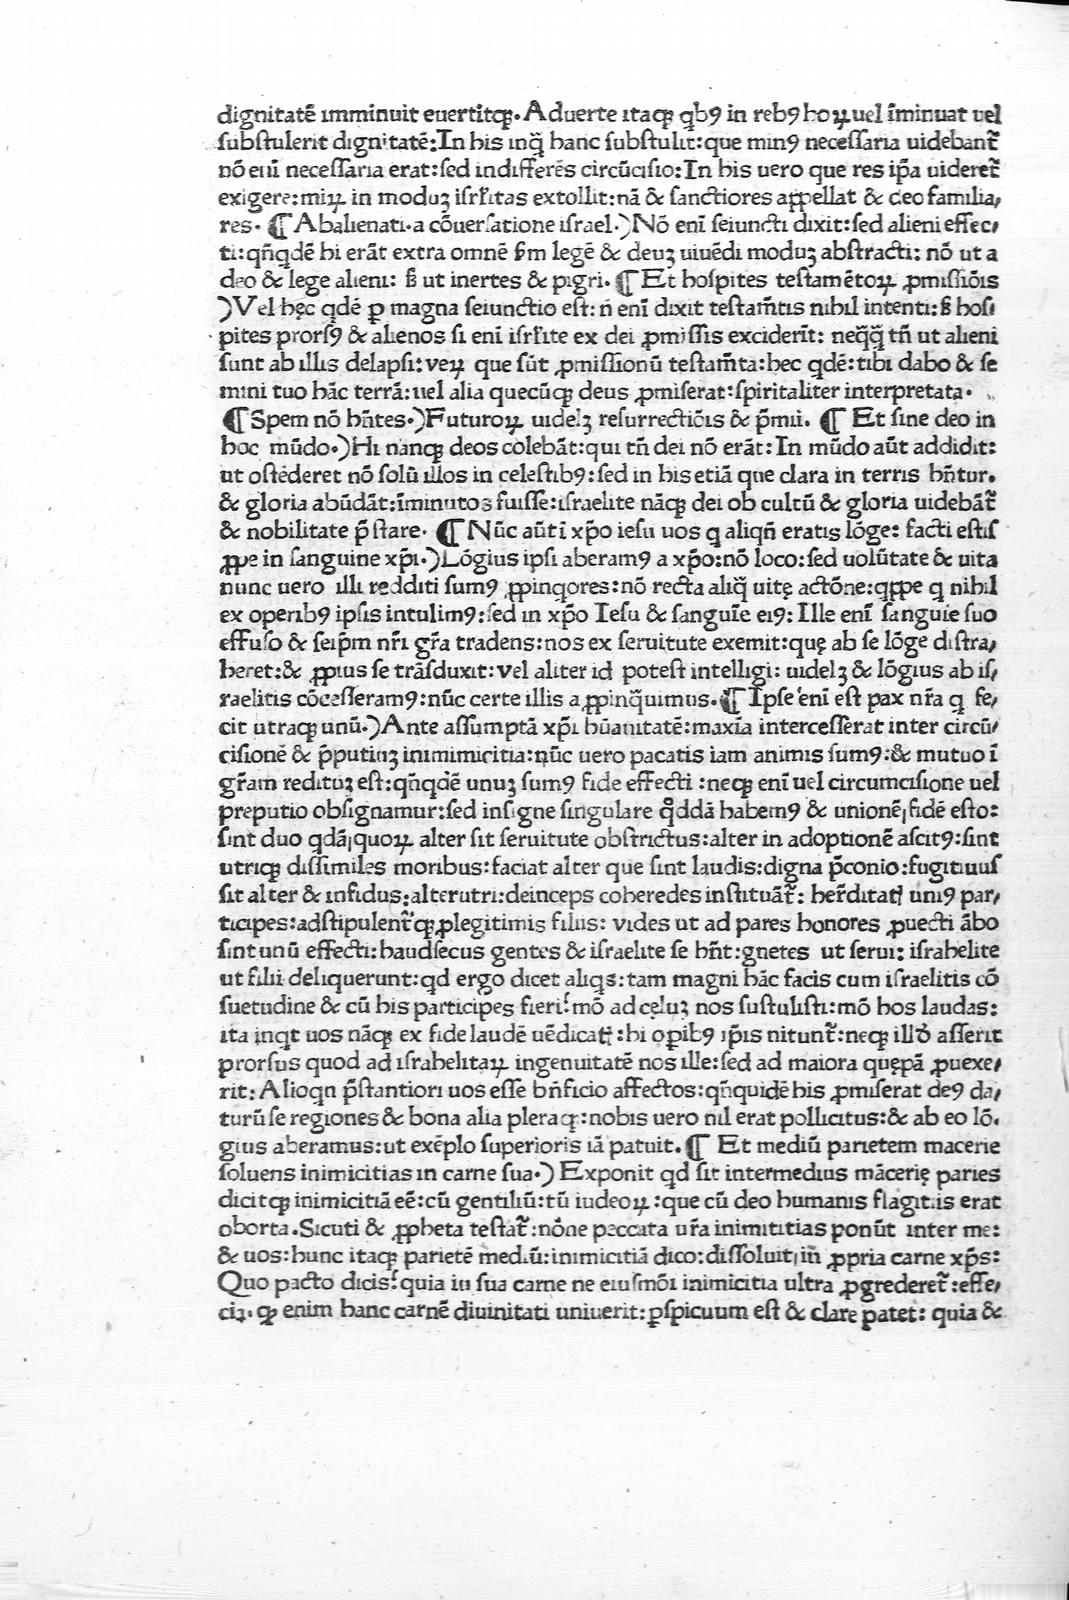 dignitatē imminuit euertitqꝫ. Aduerte itaqꝫ qbꝰ in rebꝰ hoꝝ uel īminuat uel
substulerit dignitatē: In his inq̄ hanc substulit: que minꝰ necessaria uidebant᷑
nō eiū necessaria erat: sed indifferēs circūcisio: In his uero que res ip̄a uideret᷑
exigere: miꝝ in moduꝫ isrl̄itas extollit: nā & sanctiores appellat & deo familia,
res. ¶ Abalienati a cōuersatione israel.) Nō eni̅ seiuncti dixit: sed alieni effec,
ti: qn̄qdē hi erāt extra omnē ẜm legē & deuꝫ uiuēdi moduꝫ abstracti: nō ut a
deo & lege alieni: ẜ ut inertes & pigri. ¶ Et hospites testamētoꝝ ꝓmissiōis
) Vel hęc qdē ꝑ magna seiunctio est: n̄ eni̅ dixit testam̄tis nihil intenti: ẜ hos,
pites prorsꝰ & alienos si eni̅ isrl̄ite ex dei ꝓmissis exciderīt: neq̄q̄ tn̄ ut alieni
sunt ab illis delapsi: veꝝ que sūt ꝓmissionū testam̄ta: hec qdē: tibi dabo & se
mini tuo hāc terrā: uel alia quecūqꝫ deus ꝓmiserat: spiritaliter interpretata.
¶ Spem nō hn̄tes.) Futuroꝝ uidelꝫ resurrectiōis & p̄mii. ¶ Et sine deo in
hoc mūdo.) Hi nanqꝫ deos colebāt: qui tn̄ dei nō erāt: In mūdo aūt addidit:
ut ostēderet nō solū illos in celestibꝰ: sed in his etiā que clara in terris hn̄tur.
& gloria abūdāt: īminutos fuisse: israelite nāqꝫ dei ob cultū & gloria uidebāt᷑
& nobilitate p̄stare. ¶ Nūc aūt ī xp̄o iesu uos q aliqn̄ eratis lōge: facti estis
ꝓpe in sanguine xp̄i.) Lōgius ipsi aberamꝰ a xp̄o: nō loco: sed uolūtate & uita
nunc uero illi redditi sumꝰ ꝓpinqores: nō recta aliq̄ uitę actōne: qppe q nihil
ex operibꝰ ipsis intulimꝰ: sed in xp̄o Iesu & sanguīe eiꝰ: Ille eni̅ sanguīe suo
effuso & seip̄m nr̄i gr̄a tradens: nos ex seruitute exemit: quę ab se lōge distra,
heret: & ꝓpius se trāsduxit: vel aliter id potest intelligi: uidelꝫ & lōgius ab is,
raelitis cōcesseramꝰ: nūc certe illis appinq̄uimus. ¶ Ipse eni̅ est pax nr̄a q fe,
cit utraqꝫ unū.) Ante assumptā xp̄i hūanitatē: maxīa intercesserat inter circū,
cisionē & p̄putiuꝫ inimimicitia: nūc uero pacatis iam animis sumꝰ: & mutuo ī
gr̄am redituꝫ est: qn̄qdē unuꝫ sumꝰ fide effecti: neqꝫ eni̅ uel circumcisione uel
preputio obsignamur: sed insigne singulare qͦddā habemꝰ & unionē, fidē esto:
sint duo qdā, quoꝝ alter sit seruitute obstrictus: alter in adoptionē ascitꝰ: sint
utriqꝫ dissimiles moribus: faciat alter que sint laudis: digna p̄conio: fugitiuus
sit alter & infidus: alterutri: deinceps coheredes instituāt᷑: her̄ditatꝭ uniꝰ par,
ticipes: adstipulent᷑qꝫ ꝓ legitimis filiis: vides ut ad pares honores ꝓuecti ābo
sint unū effecti: haud secus gentes & israelite se hn̄t: gnetes ut serui: israhelite
ut filii deliquerunt: qd ergo dicet aliqs: tam magni hāc facis cum israelitis cō
suetudine & cū his participes fieri? mō ad cęluꝫ nos sustulisti: mō hos laudas:
ita inqt uos nāqꝫ ex fide laudē uēdicatꝭ: hi opibꝰ ip̄is nitunt᷑: neqꝫ illď asserit
prorsus quod ad israhelitaꝝ ingenuitatē nos ille: sed ad maiora quępā ꝓuexe,
rit: Alioqn p̄stantiori uos esse bn̄ficio affectos: qn̄quidē his ꝓmiserat deꝰ da,
turū se regiones & bona alia pleraqꝫ: nobis uero nil erat pollicitus: & ab eo lō,
gius aberamus: ut exēplo superioris iā patuit. ¶ Et mediū parietem macerie
soluens inimicitias in carne sua.) Exponit qd sit intermedius mācerię paries
dicitqꝫ inimicitiā eē: cū gentiliū: tū iudeoꝝ: que cū deo humanis flagitiis erat
oborta. Sicuti & ꝓpheta testat᷑: nōne peccata ur̄a inimititias ponūt inter me:
& uos: hunc itaqꝫ parietē mediū: inimicitiā dico: dissoluit, in̄ ꝓpria carne xp̄s:
Quo pacto dicis? quia in sua carne ne eiusmōi inimicitia ultra ꝓgrederet᷑: effe,
cit. qꝫ enim hanc carnē diuinitati uniuerit: ꝑspicuum est & clare patet: quia &